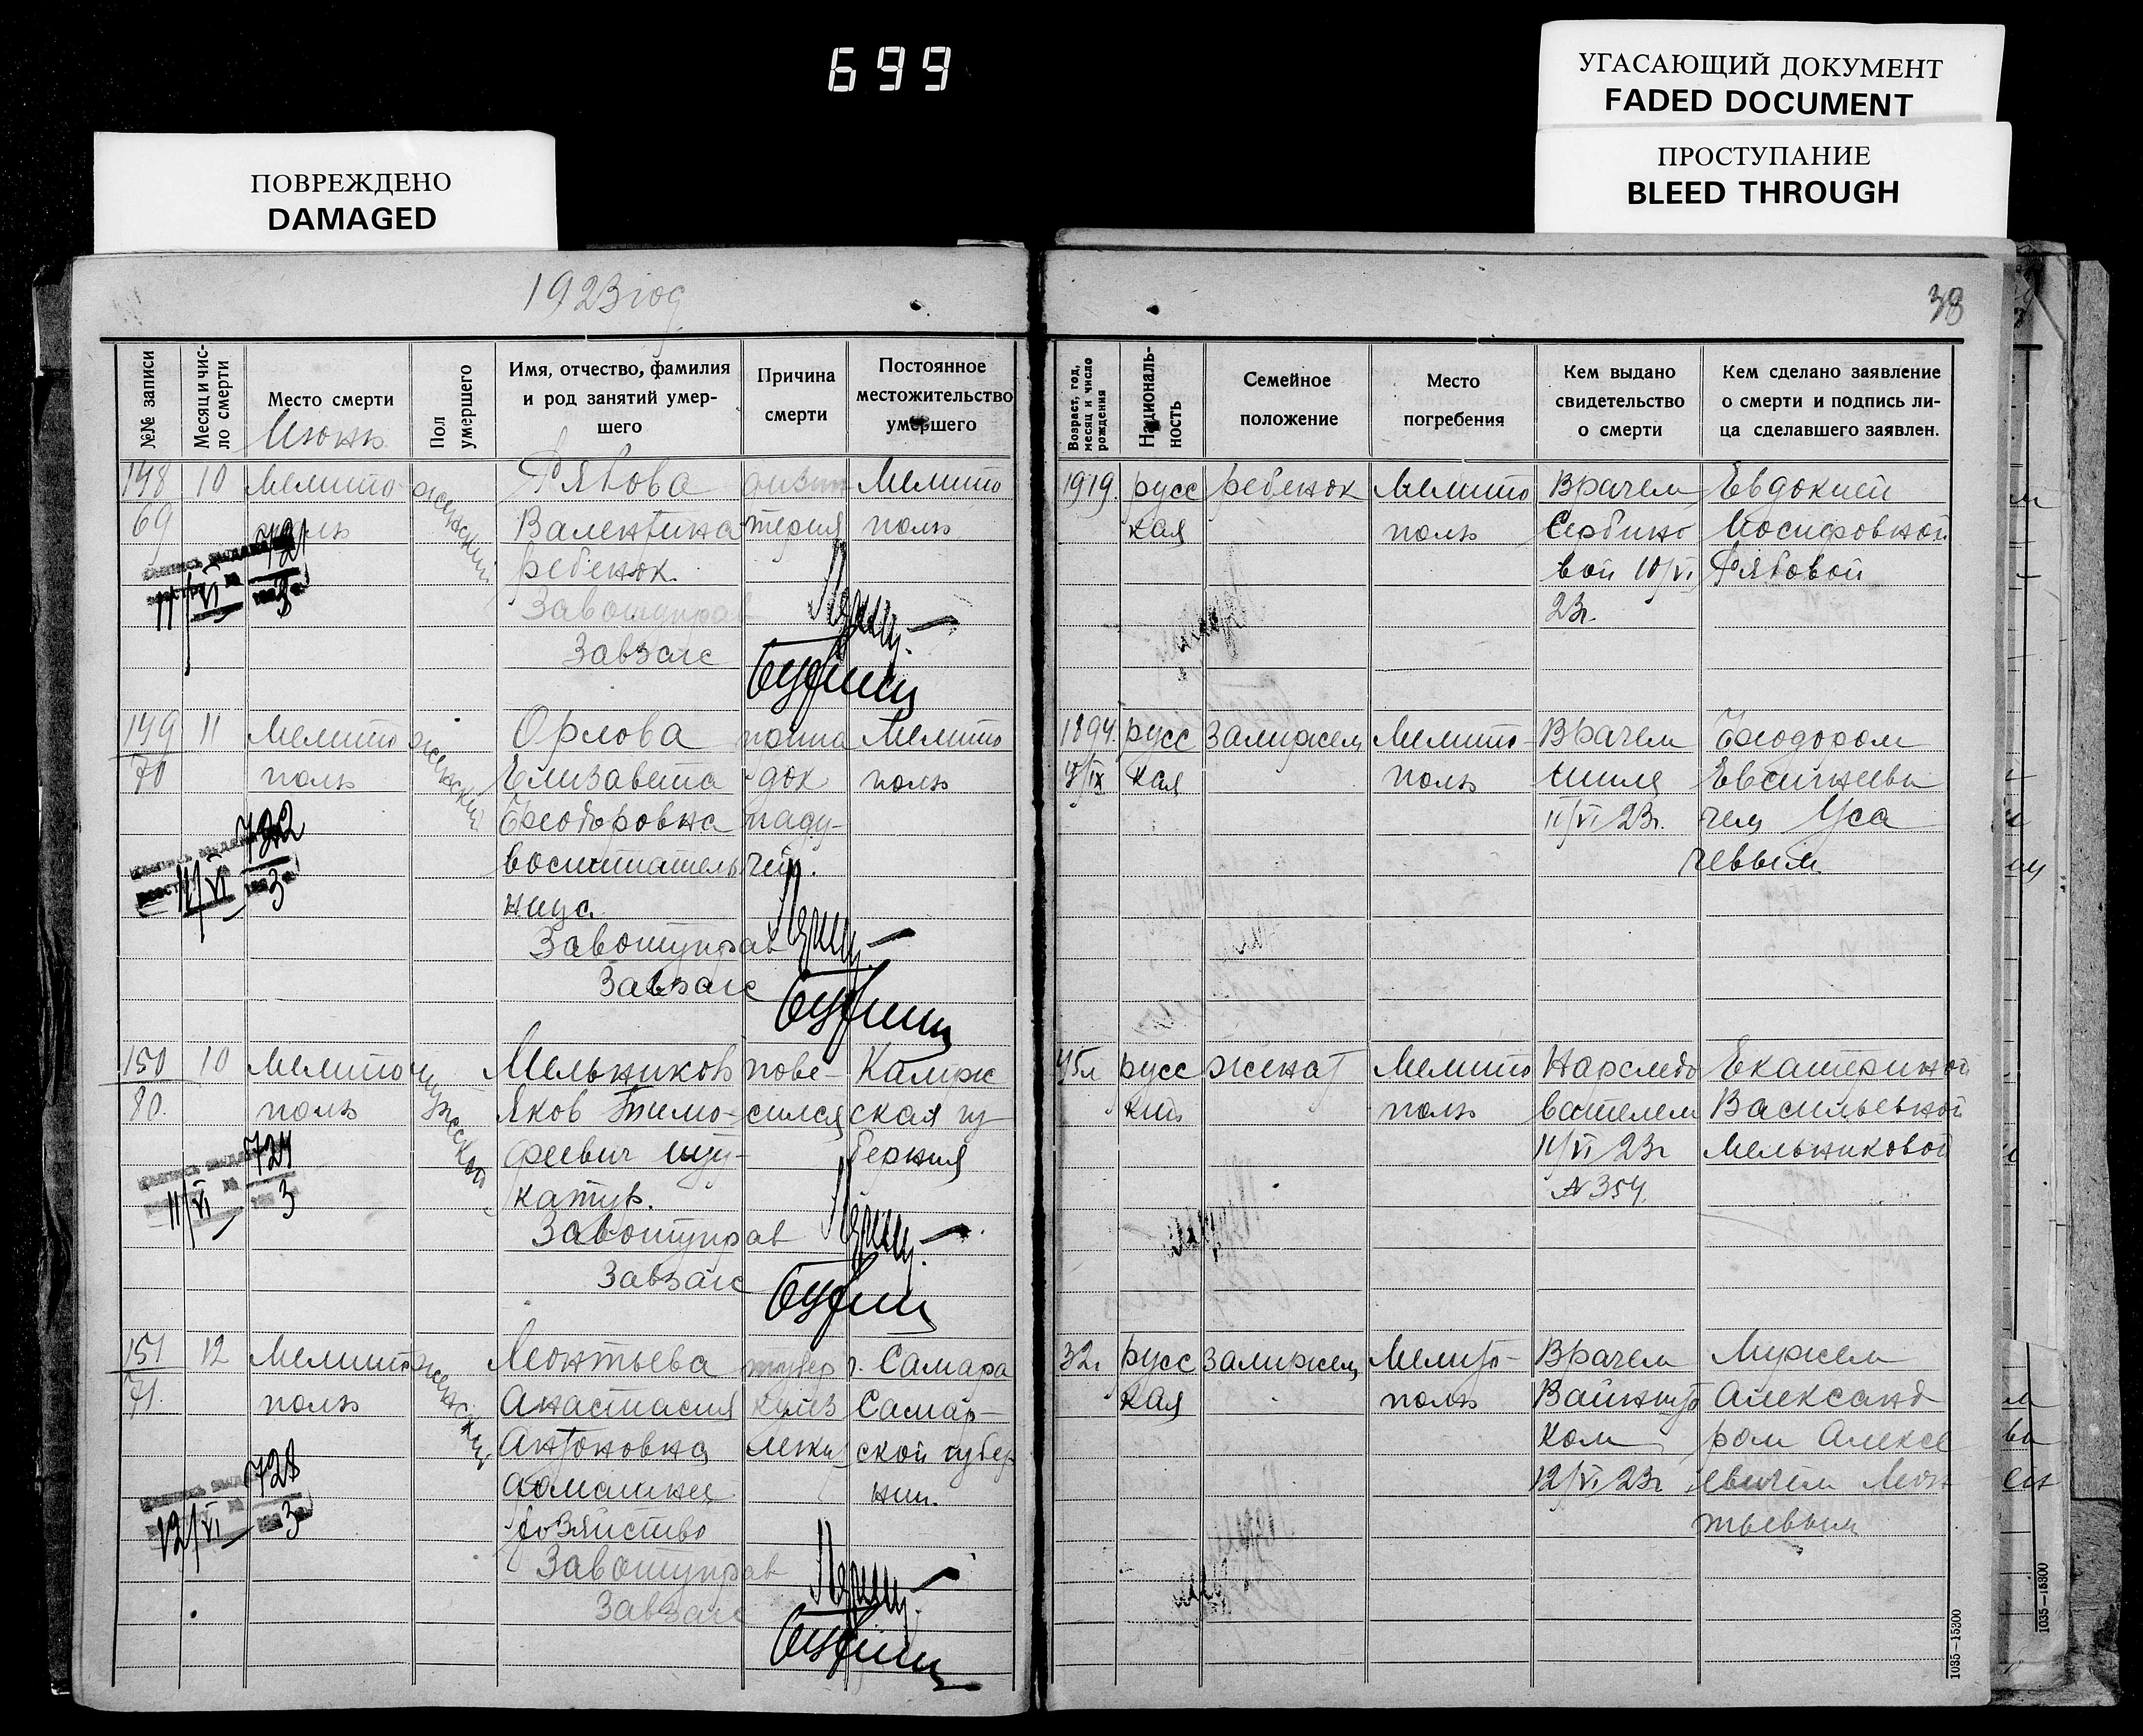 699
УГАСАЮЩИЙ ДОКУМЕНТ
FADED DOCUMENT
ПРОСТУПАНИЕ
BLEED THROUGH
ПОВРЕЖДЕНО
DAMAGED
1923 год
38
№№ записи
Месяц и чис-
ло смерти
Место смерти
Июнь
Пол
умершего
Имя, отчество, фамилия
и род занятий умер-
шего
Причина
смерти
Постоянное
местожительство
умершего
Возраст, год,
месяц и число
рождения
Националь-
ность
Семейное
положение
Место
погребения
Кем выдано
свидетельство
о смерти
Кем сделано заявление
о смерти и подпись ли-
ца сделавшего заявлен.
148
69
10
Мелито
поль
женский
Рябова
Валентина
ребенок.
Завотуправ
Завзагс
дизен
терия
Мелито
поль
1919.
русс
кая
ребенок
Мелито
поль
Врачем
вой 10/VI
23г.
Евдокией
Иосифовной
Рябовой
721
11/VI
3
149
70
11
Мелито
поль
женский
Орлова
Елизавета
Феодоровна
воспитатель
ница
Завотуправ
Завзагс
припа
док
паду-
чей.
Мелито
поль
1894.
русс
кая
Замужем
Мелито-
поль
Врачем
11/VI 23г.
Феодором
Евсигнееви
чем Уса
чевым
11/VI
3
150
80.
10
Мелито
поль
мужской
Мельников
Яков Тимо-
феевич шту-
катур.
Завотуправ
Завзагс
пове-
сился
Калуж
ская гу
берния
45л
русс
кий
женат
Мелито
поль
Нарследо
вателем
11/VI 23г
№ 354.
Екатериной
Васильевной
Мельниковой
724
11/VI
3
151
71.
12
Мелито
поль
женский
Леонтьева
Анастасия
Антоновна
домашнее
хозяйство
Завотуправ
Завзагс
тубер
кулез
легких
г. Самара
Самар-
ской губер
нии.
32г
русс
кая
замужем
Мелито-
поль
Врачем
Вайнтруб
ком
12/VI 23г
Мужем
Александ
ром Алексе
евичем Леон
тьевым
728
12/VI
3
1035—15300
1035—15300